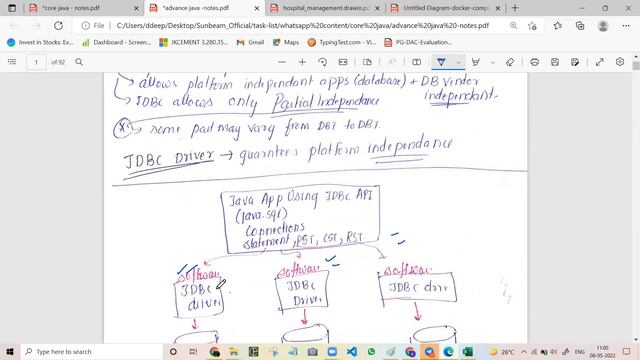 *core java - notes.pdf
*advance java -notes.pdf
hospital_management.drawio.pdf
Untitled Diagram-docker-compo
File
C:/Users/ddeep/Desktop/Sunbeam_Official/task-list/whatsapp%20content/core%20java/advance%20java%20-notes.pdf
Invest in Stocks: En...
Dashboard - Screen...
JKCEMENT 3,280.35...
Gmail
YouTube
Maps
TypingTest.com - V...
PG-DAC-Evaluation...
1 of 92
allows platform independant apps (database) + DB Vendor independant.
JDBC allows only Partial Independance
some part may vary from DBT to DBT.
JDBC Driver → guarntees platform independance
Java App Using JDBC API
(java.sql)
Connections
statement, PST, CST, RST.
software
software
software
JDBC driver
JDBC Driver
JDBC drrr
Type here to search
26°C
ENG
11:00
08-05-2022